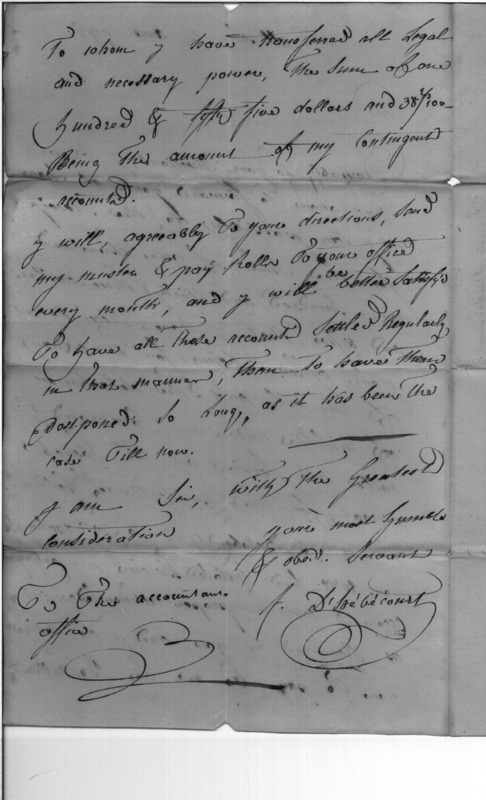 To whom y have transferred all Legal
and necessary power, The Sum of one
hundred & fifty five dollars and 38/100
Being The amount of my Contingent
accounted.
y will, agreeably To your directions, Send
my muster & pay Rolls To your office
every month, and y will be better Satisfy'd
To have all These accounted Settled Regularly
in that manner, Than To have Them
postponed So Long, as it has been The
case Till now.
y am Sir, with The Greatest
consideration
your most humble
& obed. Servant
To The accountant
office
f. D'hébécourt